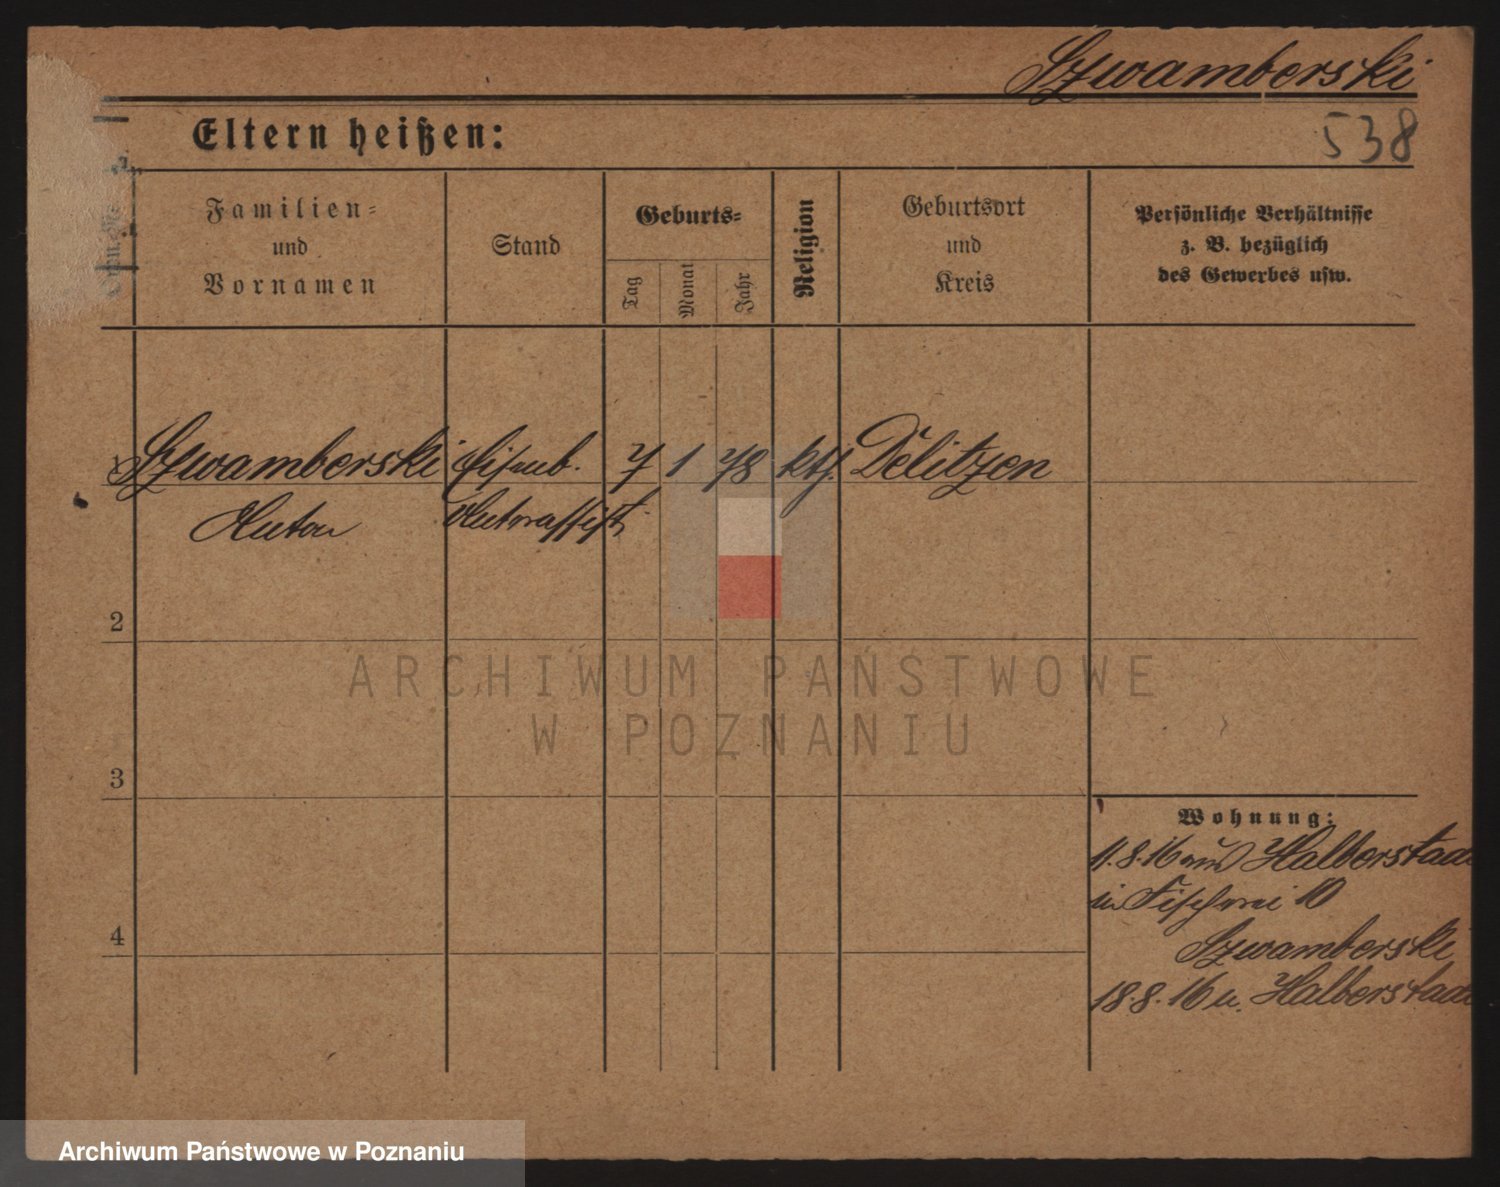 Szwamberski
538
Eltern heißen:
Familien=
und
Vornamen
Stand
Geburts=
Tag
Monat
Jahr
Religion
Geburtsort
und
Kreis
Persönliche Verhältnisse
z. B. bezüglich
des Gewerbes usw.
Szwamberski Eisenb. 7 1 78 kth. Delitzen
Anton
2
3
4
Wohnung:
11.8.16 aus Halberstadt
in Fischerei 10
Szwamberski
18.8.16 n. Halberstadt
ARCHIWUM PAŃSTWOWE
W POZNANIU
Archiwum Państwowe w Poznaniu